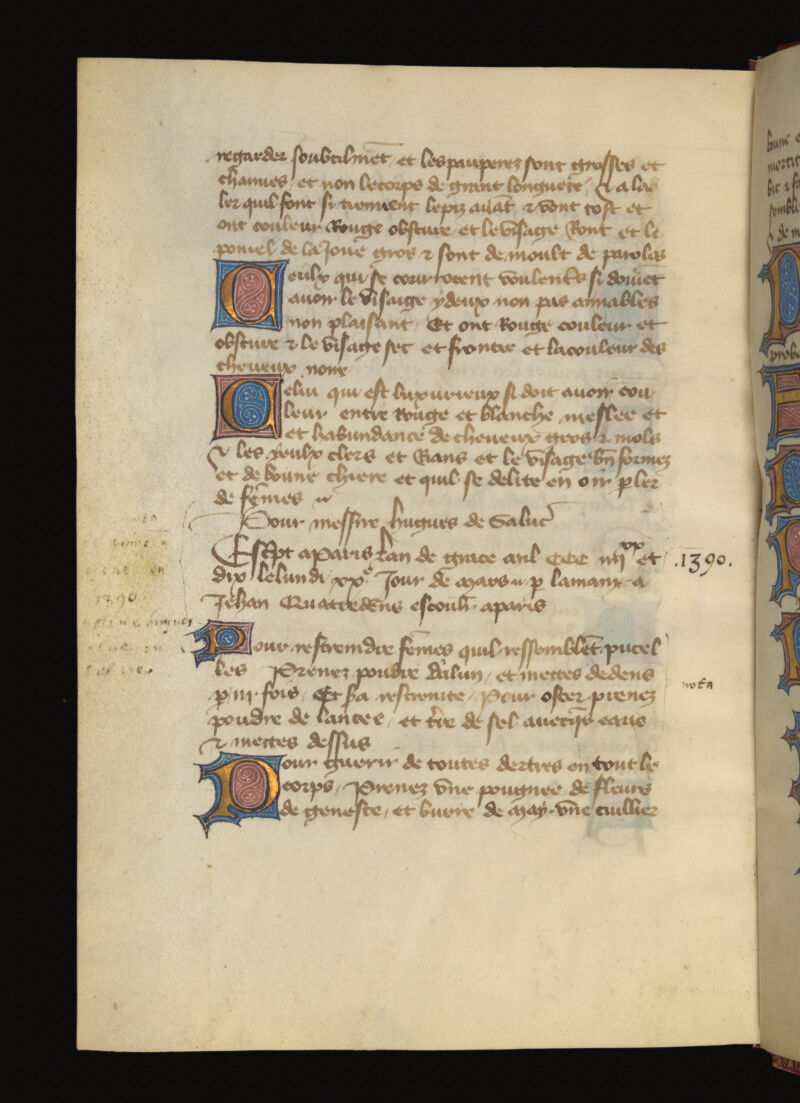 regarder soubtilmēt et les pauperes sont grosses et
charnues / et non le corps de grant longuete / Et a la
ler quil font si tiennent le piz auāt ⁊ vont tost et
ont couleur Rouge obscure et le visage Ront et le
pomel de la Joue gros ⁊ sont de moult de paroles
Ceulx qui se courrocent voulentēs si doiuēt
auoir le visaige ydeux non pas amiables
non plaisant / Et ont Rouge couleur et
obscure ⁊ le visage sec et froncie et la couleur des
cheueux noire
Celui qui est luxurieux si doit auoir cou
leur entre rouge et blanche meslee et
et habundance de cheueux gros ⁊ mols
⁊ les yeulx clers et Rans et le visage bn̄ formez
et de bonne chiere et quil se delite en oir p̱ler
de fēmes
Pour messire hugues de Saluc̄
Escp̄t a Paris lan de grace mil CCC iiij^xx et 1390.
dix le lundi xx^e Jour de Mars p̱ la main a
Jehan Quatredens escoull̄ a paris
Pour restreindre fēmes quil ressemblēt pucel
les Prenez poudre dalun / et mettes dedens
p̱ iij fois / Et sa restreinte / Pour oster prenez nota
poudre de lancee / et t̄re de sel auecq̄s eaue
⁊ mettes dessus
Pour guerir de toutes dertres en tout le
corps / Prenez vne pougnee de fleurs
de geneste / et burre de May vne cuillier